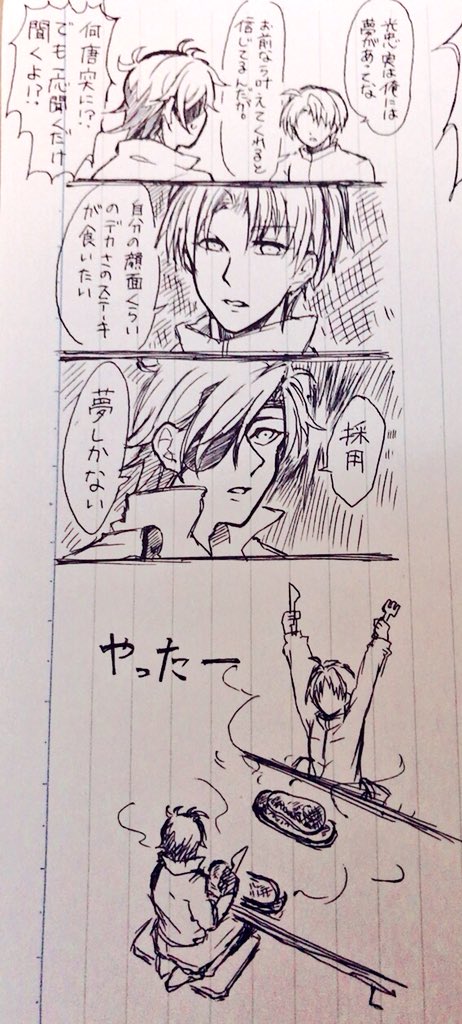 光忠実は俺には
夢があってな
お前なら叶えてくれると
信じてるんだが。
何唐突に!?
でも一応聞くだけ
聞くよ!?
自分の顔面くらい
のデカさのステーキ
が食いたい
採用
夢しかない
やったー